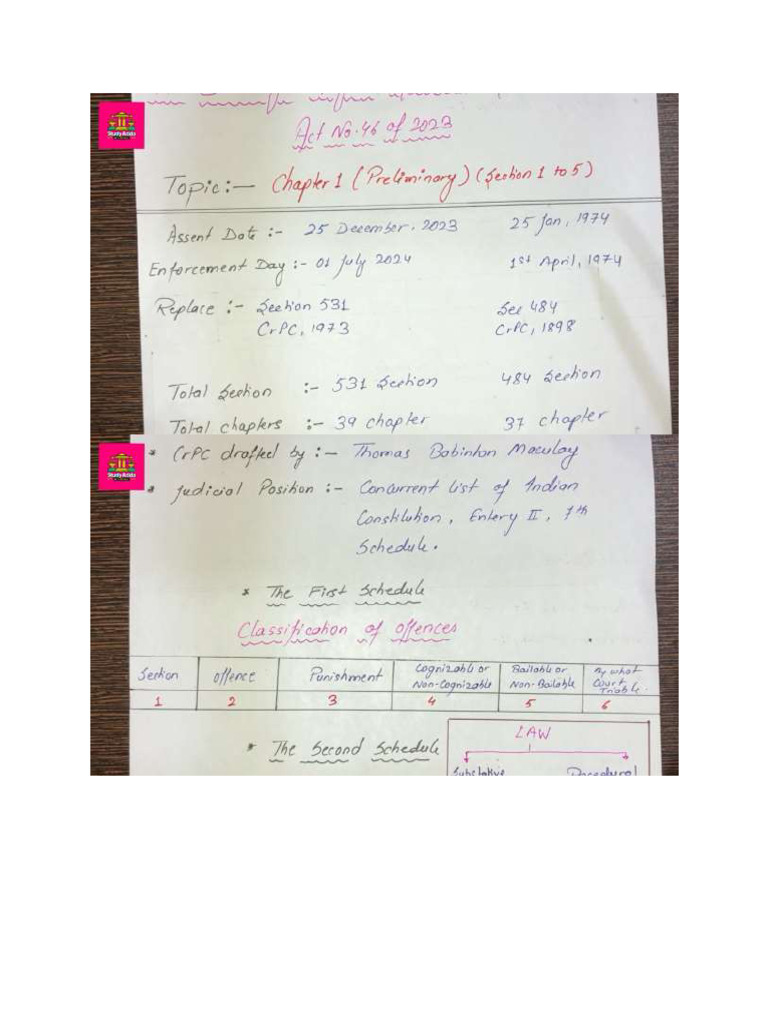 Act No. 46 of 2023
Study Adda
Topic:— Chapter 1 (Preliminary) (Section 1 to 5)
Assent Date :- 25 December, 2023 25 Jan, 1974
Enforcement Day :- 01 July 2024 1st April, 1974
Replace :- Section 531 Sec 484
CrPC, 1973 CrPC, 1898
Total Section :- 531 Section 484 Section
Total chapters :- 39 chapter 37 chapter
Study Adda
* CrPC drafted by :— Thomas Babinton Maculay
* Judicial Position :- Concurrent list of Indian
Constitution, Entery II, 7th
Schedule.
* The First Schedule
Classification of offences
Section offence Punishment Cognizable or Non-Cognizable Bailable or Non-Bailable By what Court Triable.
1 2 3 4 5 6
* The Second Schedule
LAW
Substative Procedural